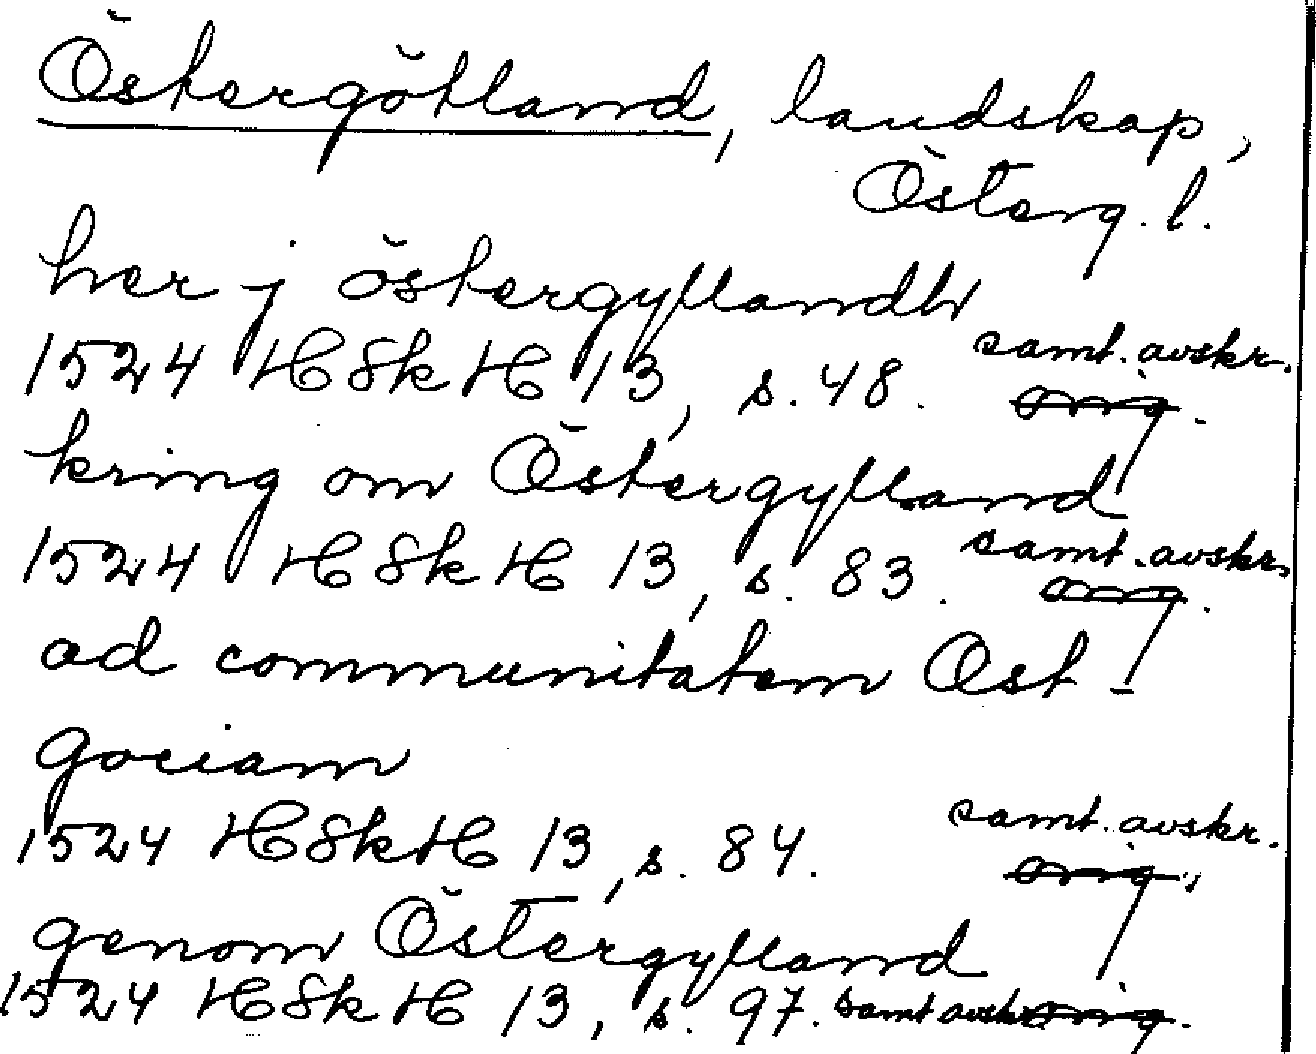 Östergötland, landskap,
Österg. l.
her j östergyllandh
1524 HSkH 13, s. 48. samt. avskr.
orig.
kring om Östergylland
1524 HSkH 13, s. 83. samt. avskr.
orig.
ad communitatem Ost-
gociam
1524 HSkH 13, s. 84. samt. avskr.
orig.
genom Östergylland
1524 HSkH 13, s. 97. samt avskr orig.